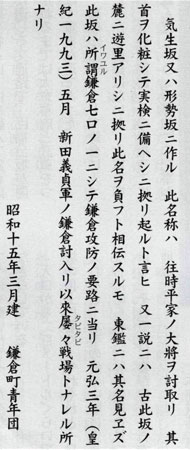 気生坂又ハ形勢坂ニ作ル　此名称ハ　往時平家ノ大将ヲ討取リ　其
首ヲ化粧シテ実検ニ備ヘシニ拠リ起ルト言ヒ　又一説ニハ　古此坂ノ
麓ニ遊里アリシニ拠リ此名ヲ負フト相伝スルモ　東鑑ニハ其名見エズ
此坂ハ所謂イワユル鎌倉七口ノ一ニシテ鎌倉攻防ノ要路ニ当リ　元弘三年（皇
紀一九九三）五月　新田義貞軍ノ鎌倉討入リ以来屡々タビタビ戦場トナレル所
ナリ
昭和十五年三月建　鎌倉町青年団